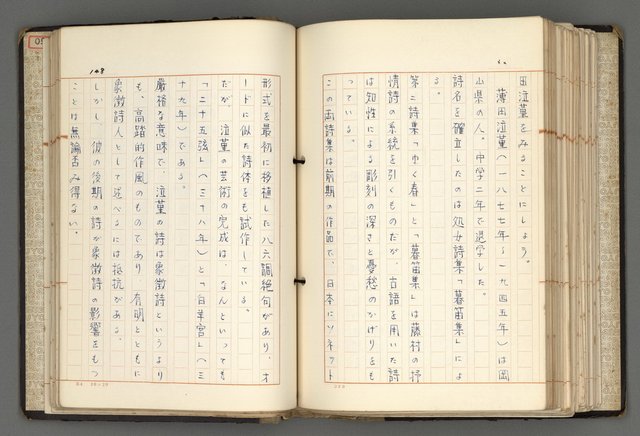 田泣菫をみることにしよう。
薄田泣菫（一八七七年～一九四五年）は岡
山県の人。中学二年で退学した。
詩名を確立したのは処女詩集「暮笛集」によ
る。
第二詩集「ゆく春」と「暮笛集」は藤村の抒
情詩の系統を引くものだが、古語を用いた詩
は知性による彫刻の深さと憂愁のかげりをも
っている。
この両詩集は前期の作品で、日本にソネット
形式を最初に移植した八六調絶句があり、オ
ードに似た詩体をも試作している。
だが、泣菫の芸術の完成は、なんといっても
「二十五弦」（三十八年）と「白羊宮」（三
十九年）である。
厳格な意味で、泣菫の詩は象徴詩というより
も、高踏的作風のものであり、有明とともに
象徴詩人として述べるには抵抗がある。
しかし、彼の後期の詩が象徴詩の影響をもつ
ことは無論否み得ない。
108